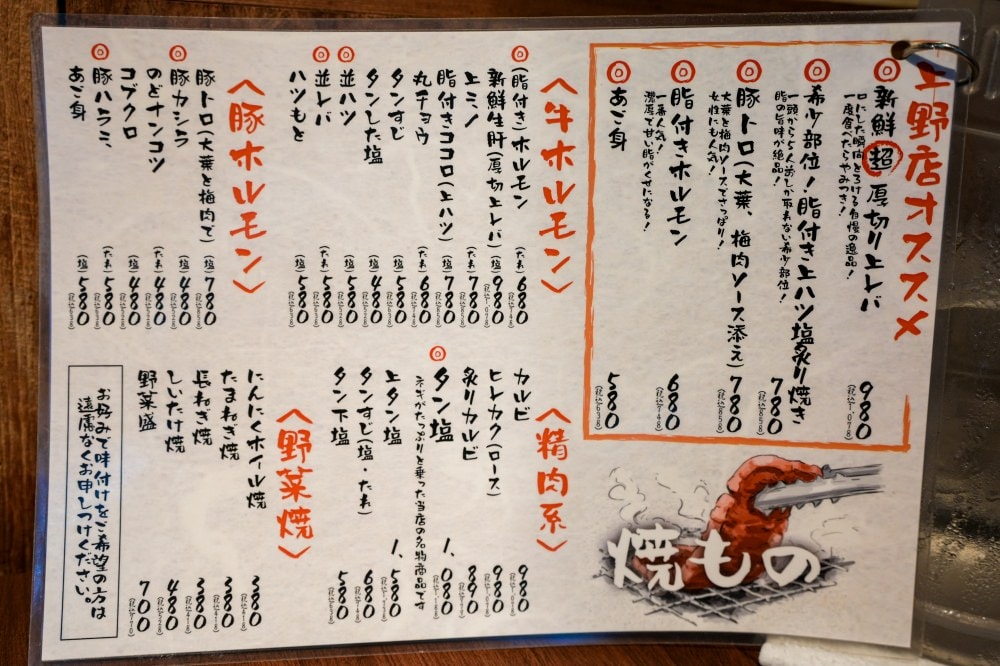 上野店オススメ
◎新鮮超厚切り上レバ 980
(税込1,078)
口にした瞬間とろける自慢の逸品!
一度食べたらやみつき!
◎希少部位!脂付き上ハツ塩炙り焼き 780
(税込858)
一頭から5人前しか取れない希少部位!
脂の旨味が絶品!
◎豚トロ(大葉、梅肉ソース添え) 780
(税込858)
大葉と梅肉ソースでさっぱり!
女性にも人気!
◎脂付きホルモン 680
(税込748)
一番人気!
濃厚で甘い脂がくせになる!
◎あご身 580
(税込638)
焼もの
〈牛ホルモン〉
◎(脂付き)ホルモン (たれ) 680
(税込748)
新鮮生肝(厚切上レバ) (塩) 980
(税込1,078)
上ミノ (たれ) 780
(税込858)
脂付きココロ(上ハツ) (塩) 780
(税込858)
丸チョウ (たれ) 680
(税込748)
タンすじ (塩) 580
(税込638)
タンした塩 (塩) 480
◎並ハツ (塩) 580
(税込638)
◎並レバ (たれ) 580
(税込638)
ハツもと (塩) 580
(税込638)
〈豚ホルモン〉
豚トロ(大葉と梅肉で) (塩) 780
(税込858)
◎豚カシラ (塩) 480
のどナンコツ (たれ) 480
コブクロ (たれ) 480
◎豚ハラミ (たれ) 580
(税込638)
あご身 (塩) 580
(税込638)
〈精肉系〉
カルビ 980
ヒレカク(ロース) 980
炙りカルビ 890
◎タン塩 1,080
ネギがたっぷりと乗った当店の名物商品です
上タン塩 1,580
タンすじ(塩・たれ) 680
(税込748)
タン下塩 580
(税込638)
〈野菜焼〉
にんにくホイール焼 380
(税込418)
たまねぎ焼 380
(税込418)
長ねぎ焼 380
(税込418)
しいたけ焼 480
野菜盛 700
(税込770)
お好みで味付けをご希望の方は
遠慮なくお申しつけください。